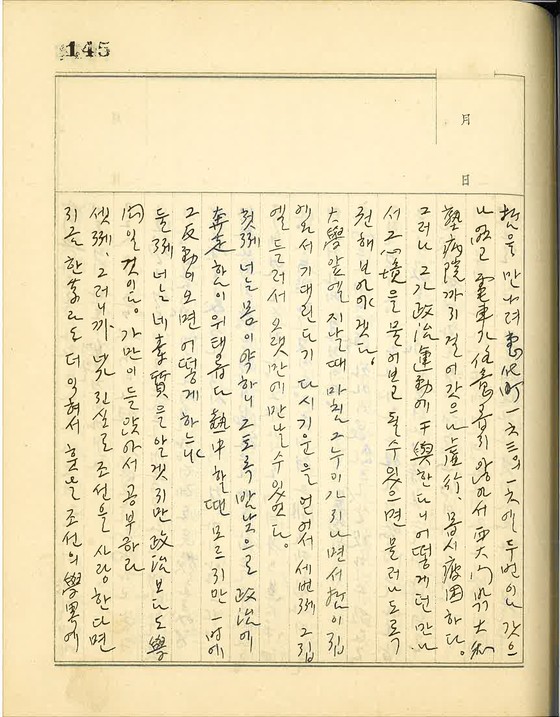 145
月
日
을 만나려 惠化町 一六三의 一六엘 두번이나 갓으
나 없고 電車가 않아서 西大門 大和
塾病院까지 걸어갓으나 虛行. 몹시 疲困하다.
그러나 그가 政治運動에 干與한다니 어떻게던 만나
서 그 心境을 물어보고 될수있으면 물러나도록
권해 보아야겠다.
大學앞엘 지날때 마침 그 누이가 지나면서 이 집
에와서 기대린다기 다시 기운을 얻어서 세번째 그 집
엘 들러서 오랫만에 만날 수 있었다.
첫째 너는 몸이 약하니 그토록 밤낮으로 政治에
奔走함이 위태롭다. 熱中할땐 모르지만 一時에
그 反動이 오면 어떻게 하느냐
둘째 너는 네 素質을 알겟지만 政治보다도 學
일 것이다. 가만이 들앉아서 공부하라
셋째, 그러니까 네가 진실로 조선을 사랑한다면
지금 한 字라도 더 익혀서 훗날 조선의 學界에